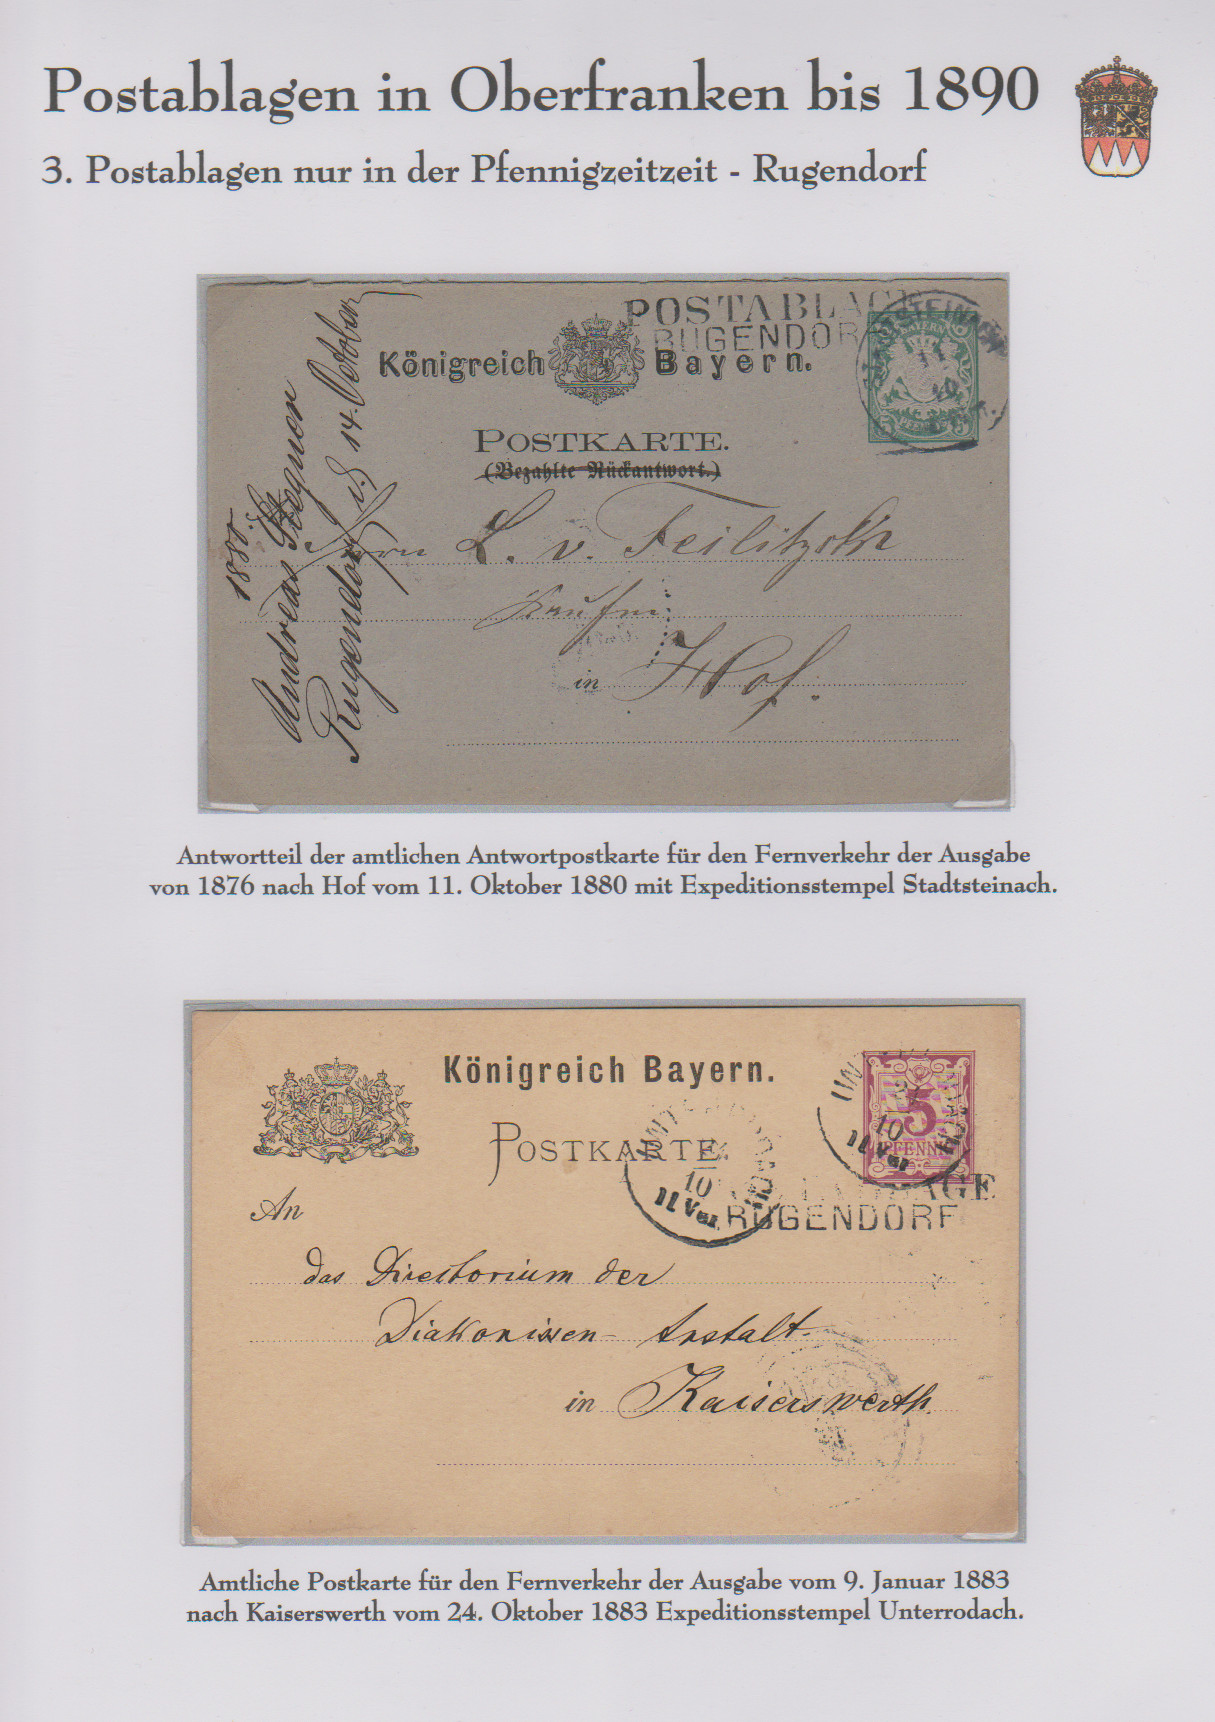 Postablagen in Oberfranken bis 1890
3. Postablagen nur in der Pfennigzeitzeit - Rugendorf
POSTABLAGE
RUGENDORF
STADTSTEINACH
11
10
BAYERN
5 PFENNIG 5
Königreich Bayern.
POSTKARTE.
(Bezahlte Rückantwort.)
Herrn L. v. Feilitzsch
Kaufm.
in Hof.
1880.
Andreas Stegner
Rugendorf d. 14. October
Antwortteil der amtlichen Antwortpostkarte für den Fernverkehr der Ausgabe
von 1876 nach Hof vom 11. Oktober 1880 mit Expeditionsstempel Stadtsteinach.
Königreich Bayern.
POSTKARTE.
5
PFENNIG
10
11 Vor
10
11 Vor
POSTABLAGE
RUGENDORF
An
das Directorium der
Diakonissen-Anstalt
in Kaiserswerth.
Amtliche Postkarte für den Fernverkehr der Ausgabe vom 9. Januar 1883
nach Kaiserswerth vom 24. Oktober 1883 Expeditionsstempel Unterrodach.